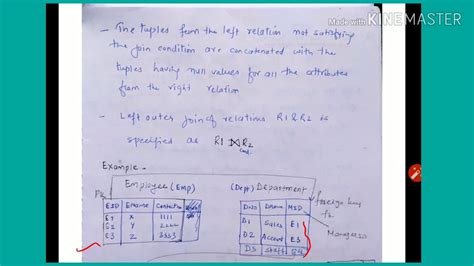 Made with KINEMASTER
- The tuples from the left relation not satisfying
the join condition are concatenated with the
tuples having null values for all the attributes
from the right relation
- Left outer join of relations R1 & R2 is
specified as R1 ⟕ R2
Example -
Employee (Emp) (Dept) Department
PK
EID Ename
DNO Dname MID
foreign key
fk
E1 X 1111
D1 Sales E1
Manages
E2 Y 2222
D2 Account E3
E3 Z 3333
D3